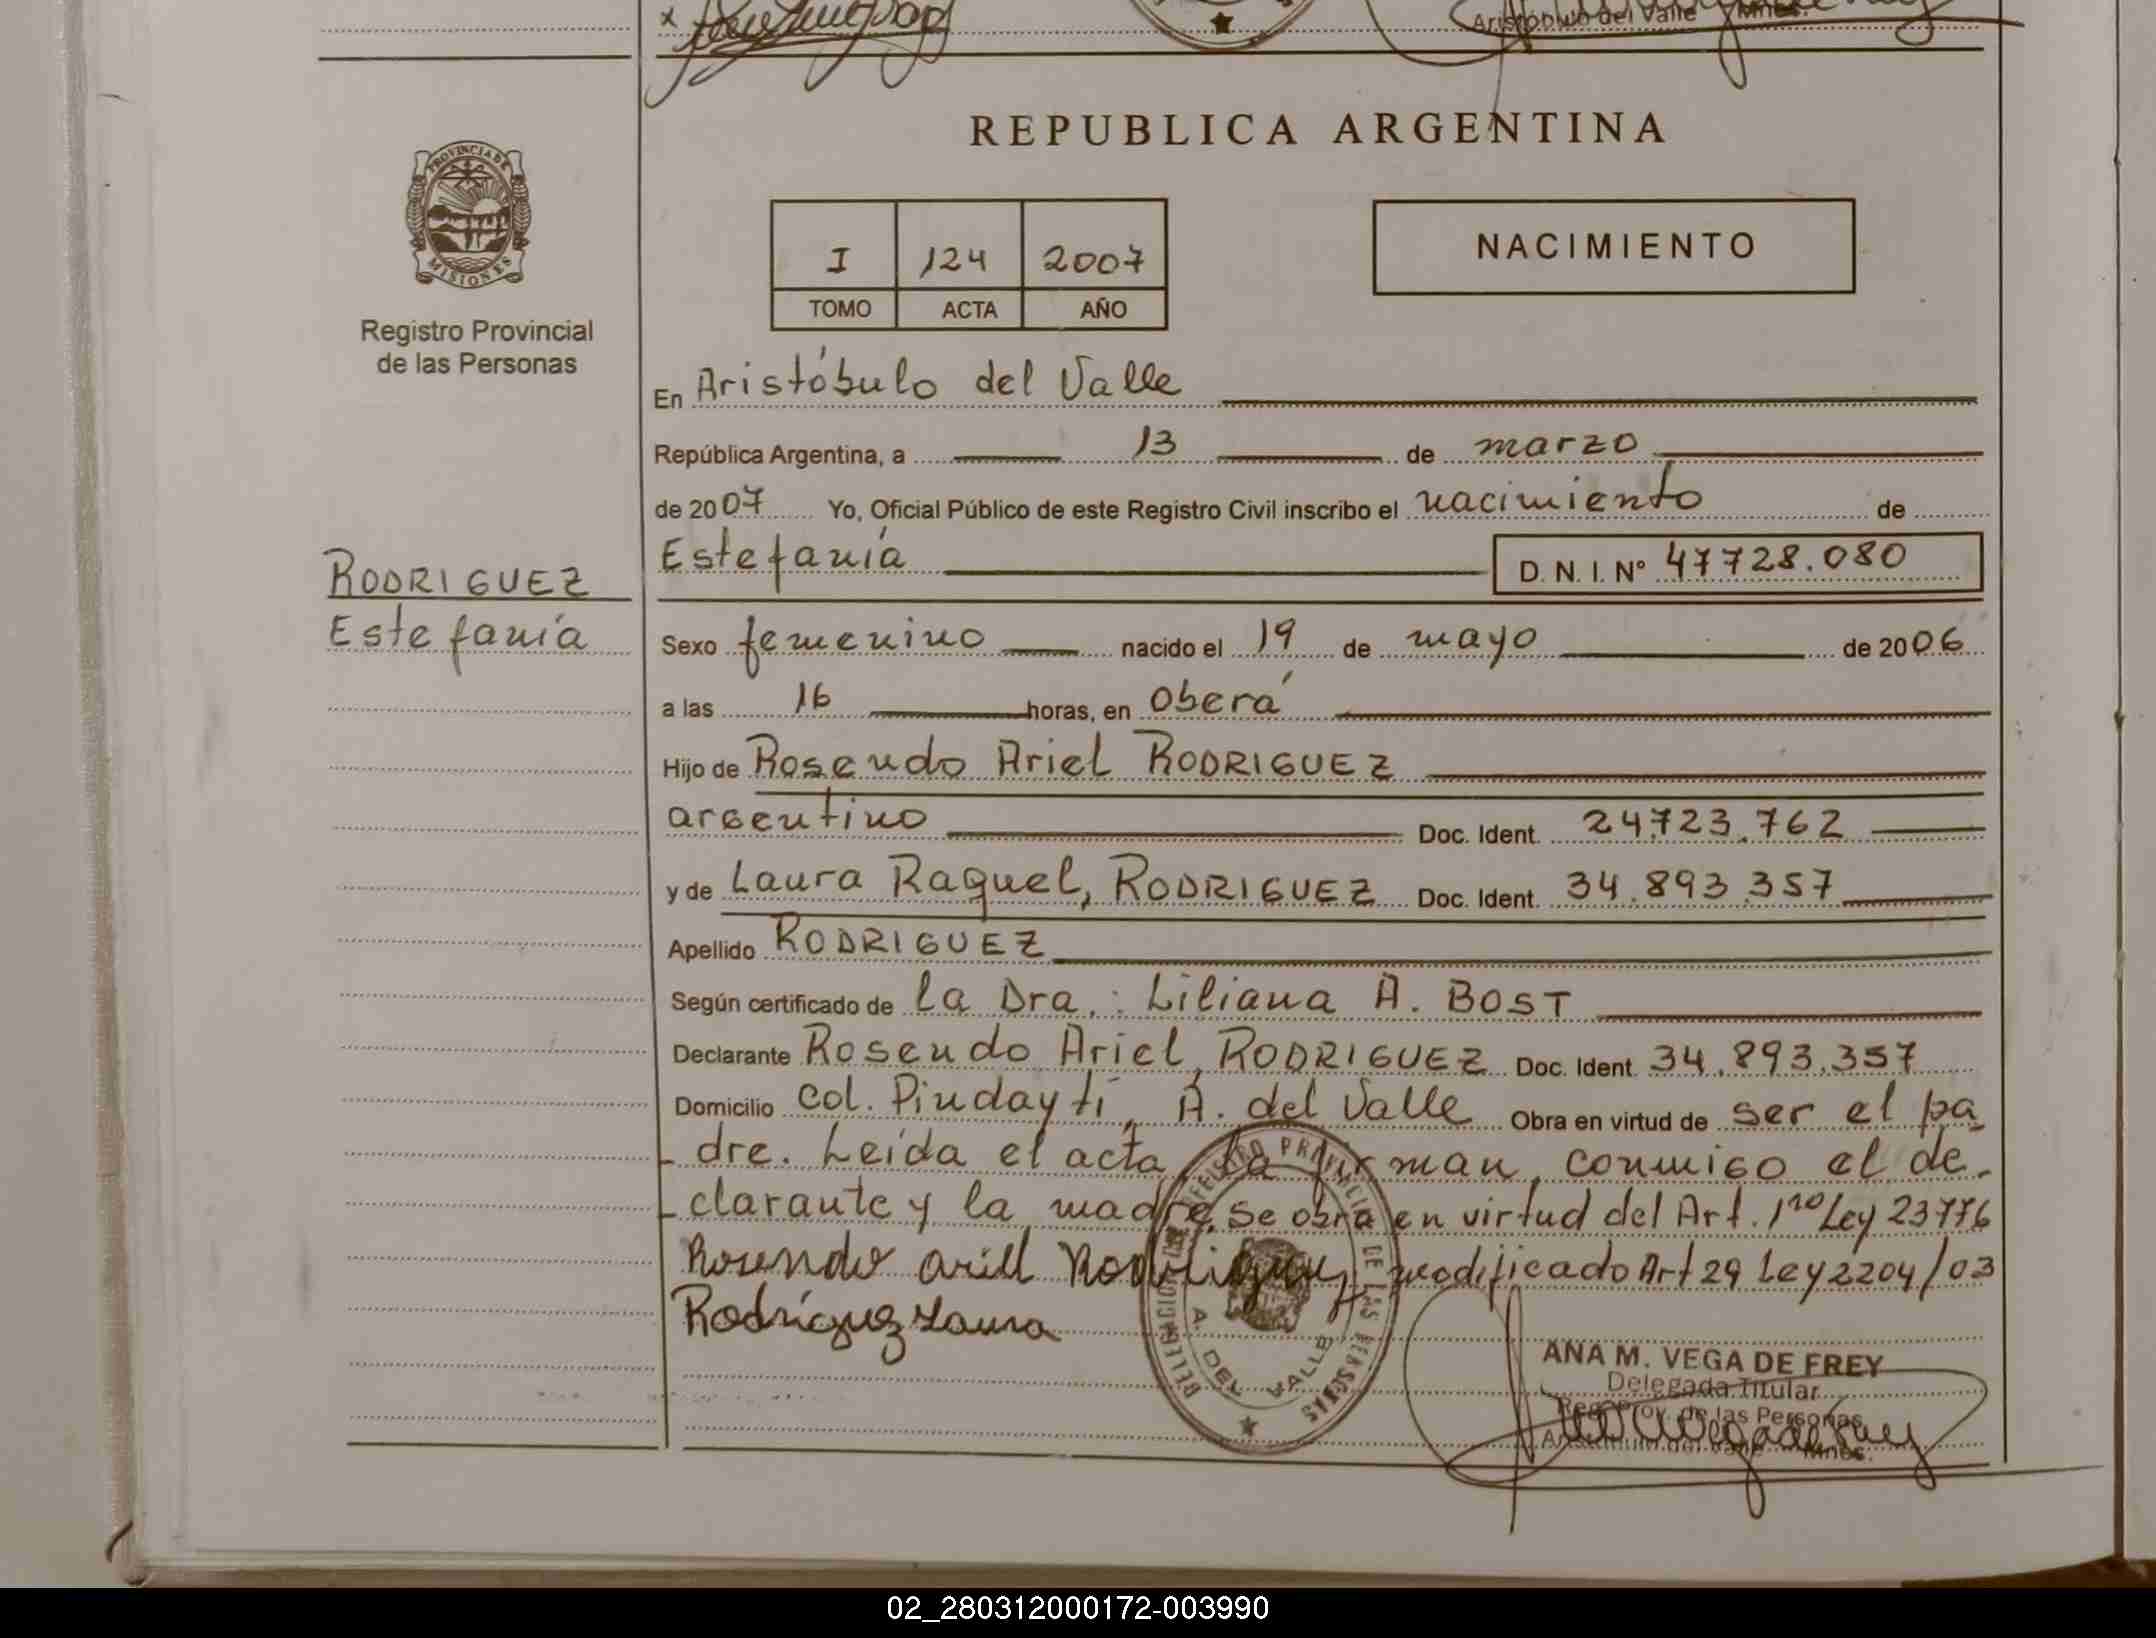 Aristóbulo del Valle Mnes.
REPUBLICA ARGENTINA
PROVINCIA DE
MISIONES
Registro Provincial
de las Personas
I 124 2007
TOMO ACTA AÑO
NACIMIENTO
En Aristóbulo del Valle
República Argentina, a 13 de marzo
de 2007 Yo, Oficial Público de este Registro Civil inscribo el nacimiento de
Estefanía D. N. I. Nº 47728.080
RODRIGUEZ
Estefanía
Sexo femenino nacido el 19 de mayo de 2006
a las 16 horas, en Oberá
Hijo de Rosendo Ariel RODRIGUEZ
argentino Doc. Ident. 24.723.762
y de Laura Raquel, RODRIGUEZ Doc. Ident. 34.893.357
Apellido RODRIGUEZ
Según certificado de la Dra.: Liliana A. BOST
Declarante Rosendo Ariel, RODRIGUEZ Doc. Ident. 34.893.357
Domicilio Col. Pindaytí, A. del Valle Obra en virtud de ser el pa
dre. Leída el acta, la firman conmigo el de
clarante y la madre, se obra en virtud del Art. 1ro Ley 23776
Rosendo Ariel Rodriguez modificado Art 29 Ley 2204/03
Rodríguez Laura
REGISTRO PROVINCIAL DE LAS PERSONAS
A. DEL VALLE
ANA M. VEGA DE FREY
Delegada Titular
Reg. Prov. de las Personas
Aristóbulo del Valle Mnes.
02_280312000172-003990